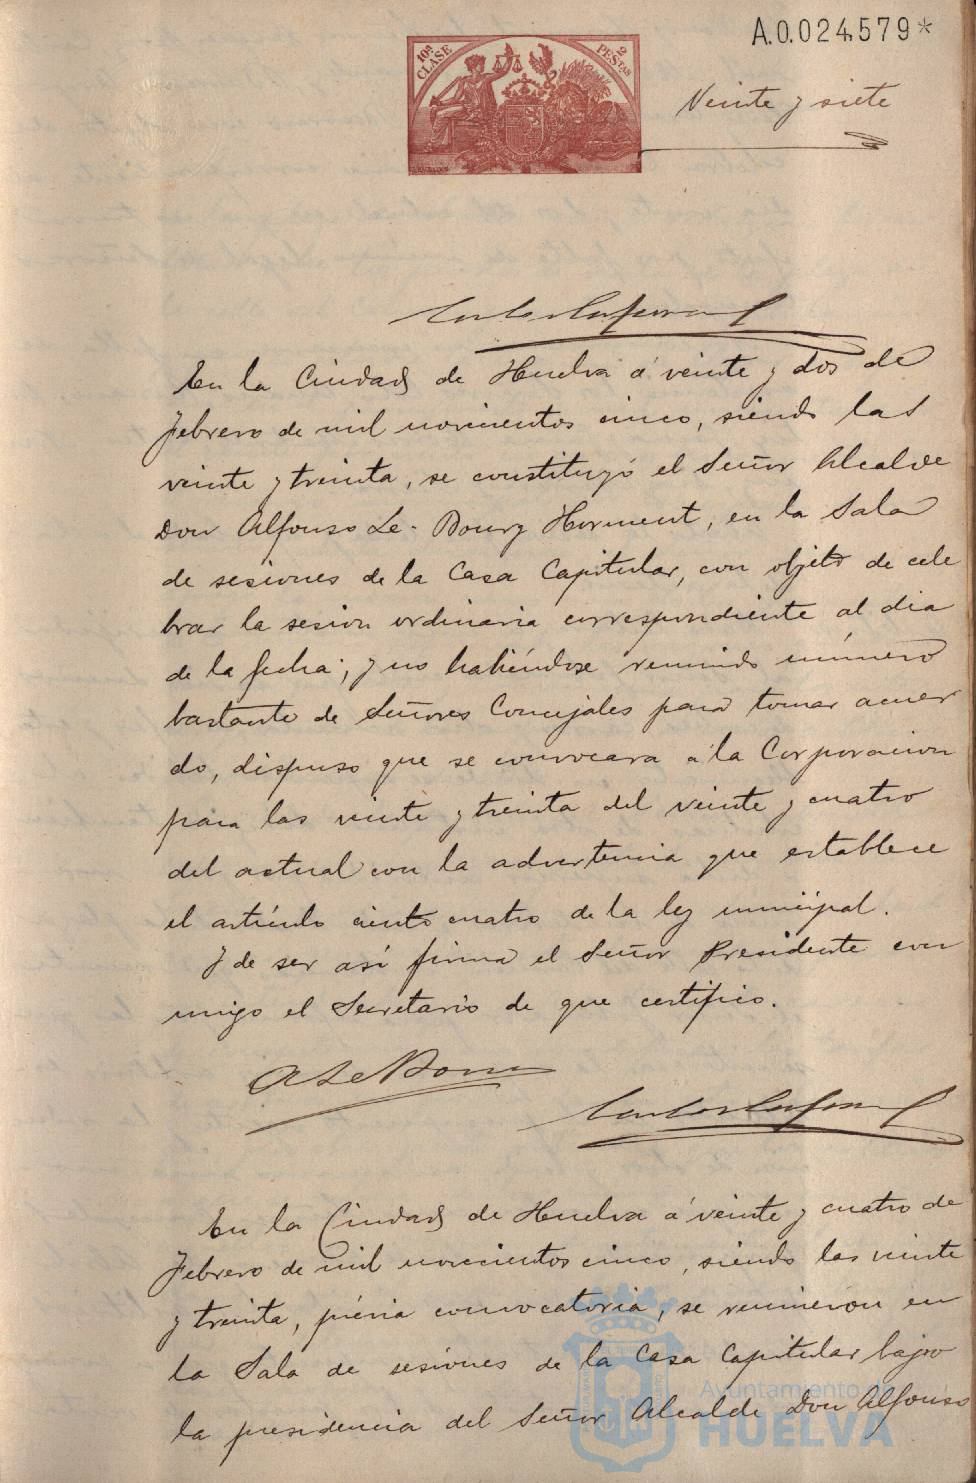 A.0.024.579*
10ª CLASE
2 PESTAS
Veinte y siete
En la Ciudad de Huelva á veinte y dos de
Febrero de mil novecientos cinco, siendo las
veinte y treinta, se constituyó el Señor Alcalde
Don Alfonso Le-Bourg Herment, en la Sala
de sesiones de la Casa Capitular, con objeto de cele
brar la sesion ordinaria correspondiente al dia
de la fecha; y no habiéndose reunido número
bastante de Señores Concejales para tomar acuer
do, dispuso que se convocara á la Corporacion
para las veinte y treinta del veinte y cuatro
del actual con la advertencia que establece
el artículo ciento cuatro de la ley municipal.
Y de ser así firma el Señor Presidente con
migo el Secretario de que certifico.
A Le Bourg
En la Ciudad de Huelva á veinte y cuatro de
Febrero de mil novecientos cinco, siendo las veinte
y treinta, prévia convocatoria, se reunieron en
la Sala de sesiones de la Casa Capitular bajo
la presidencia del Señor Alcalde Don Alfonso
Ayuntamiento de
HUELVA